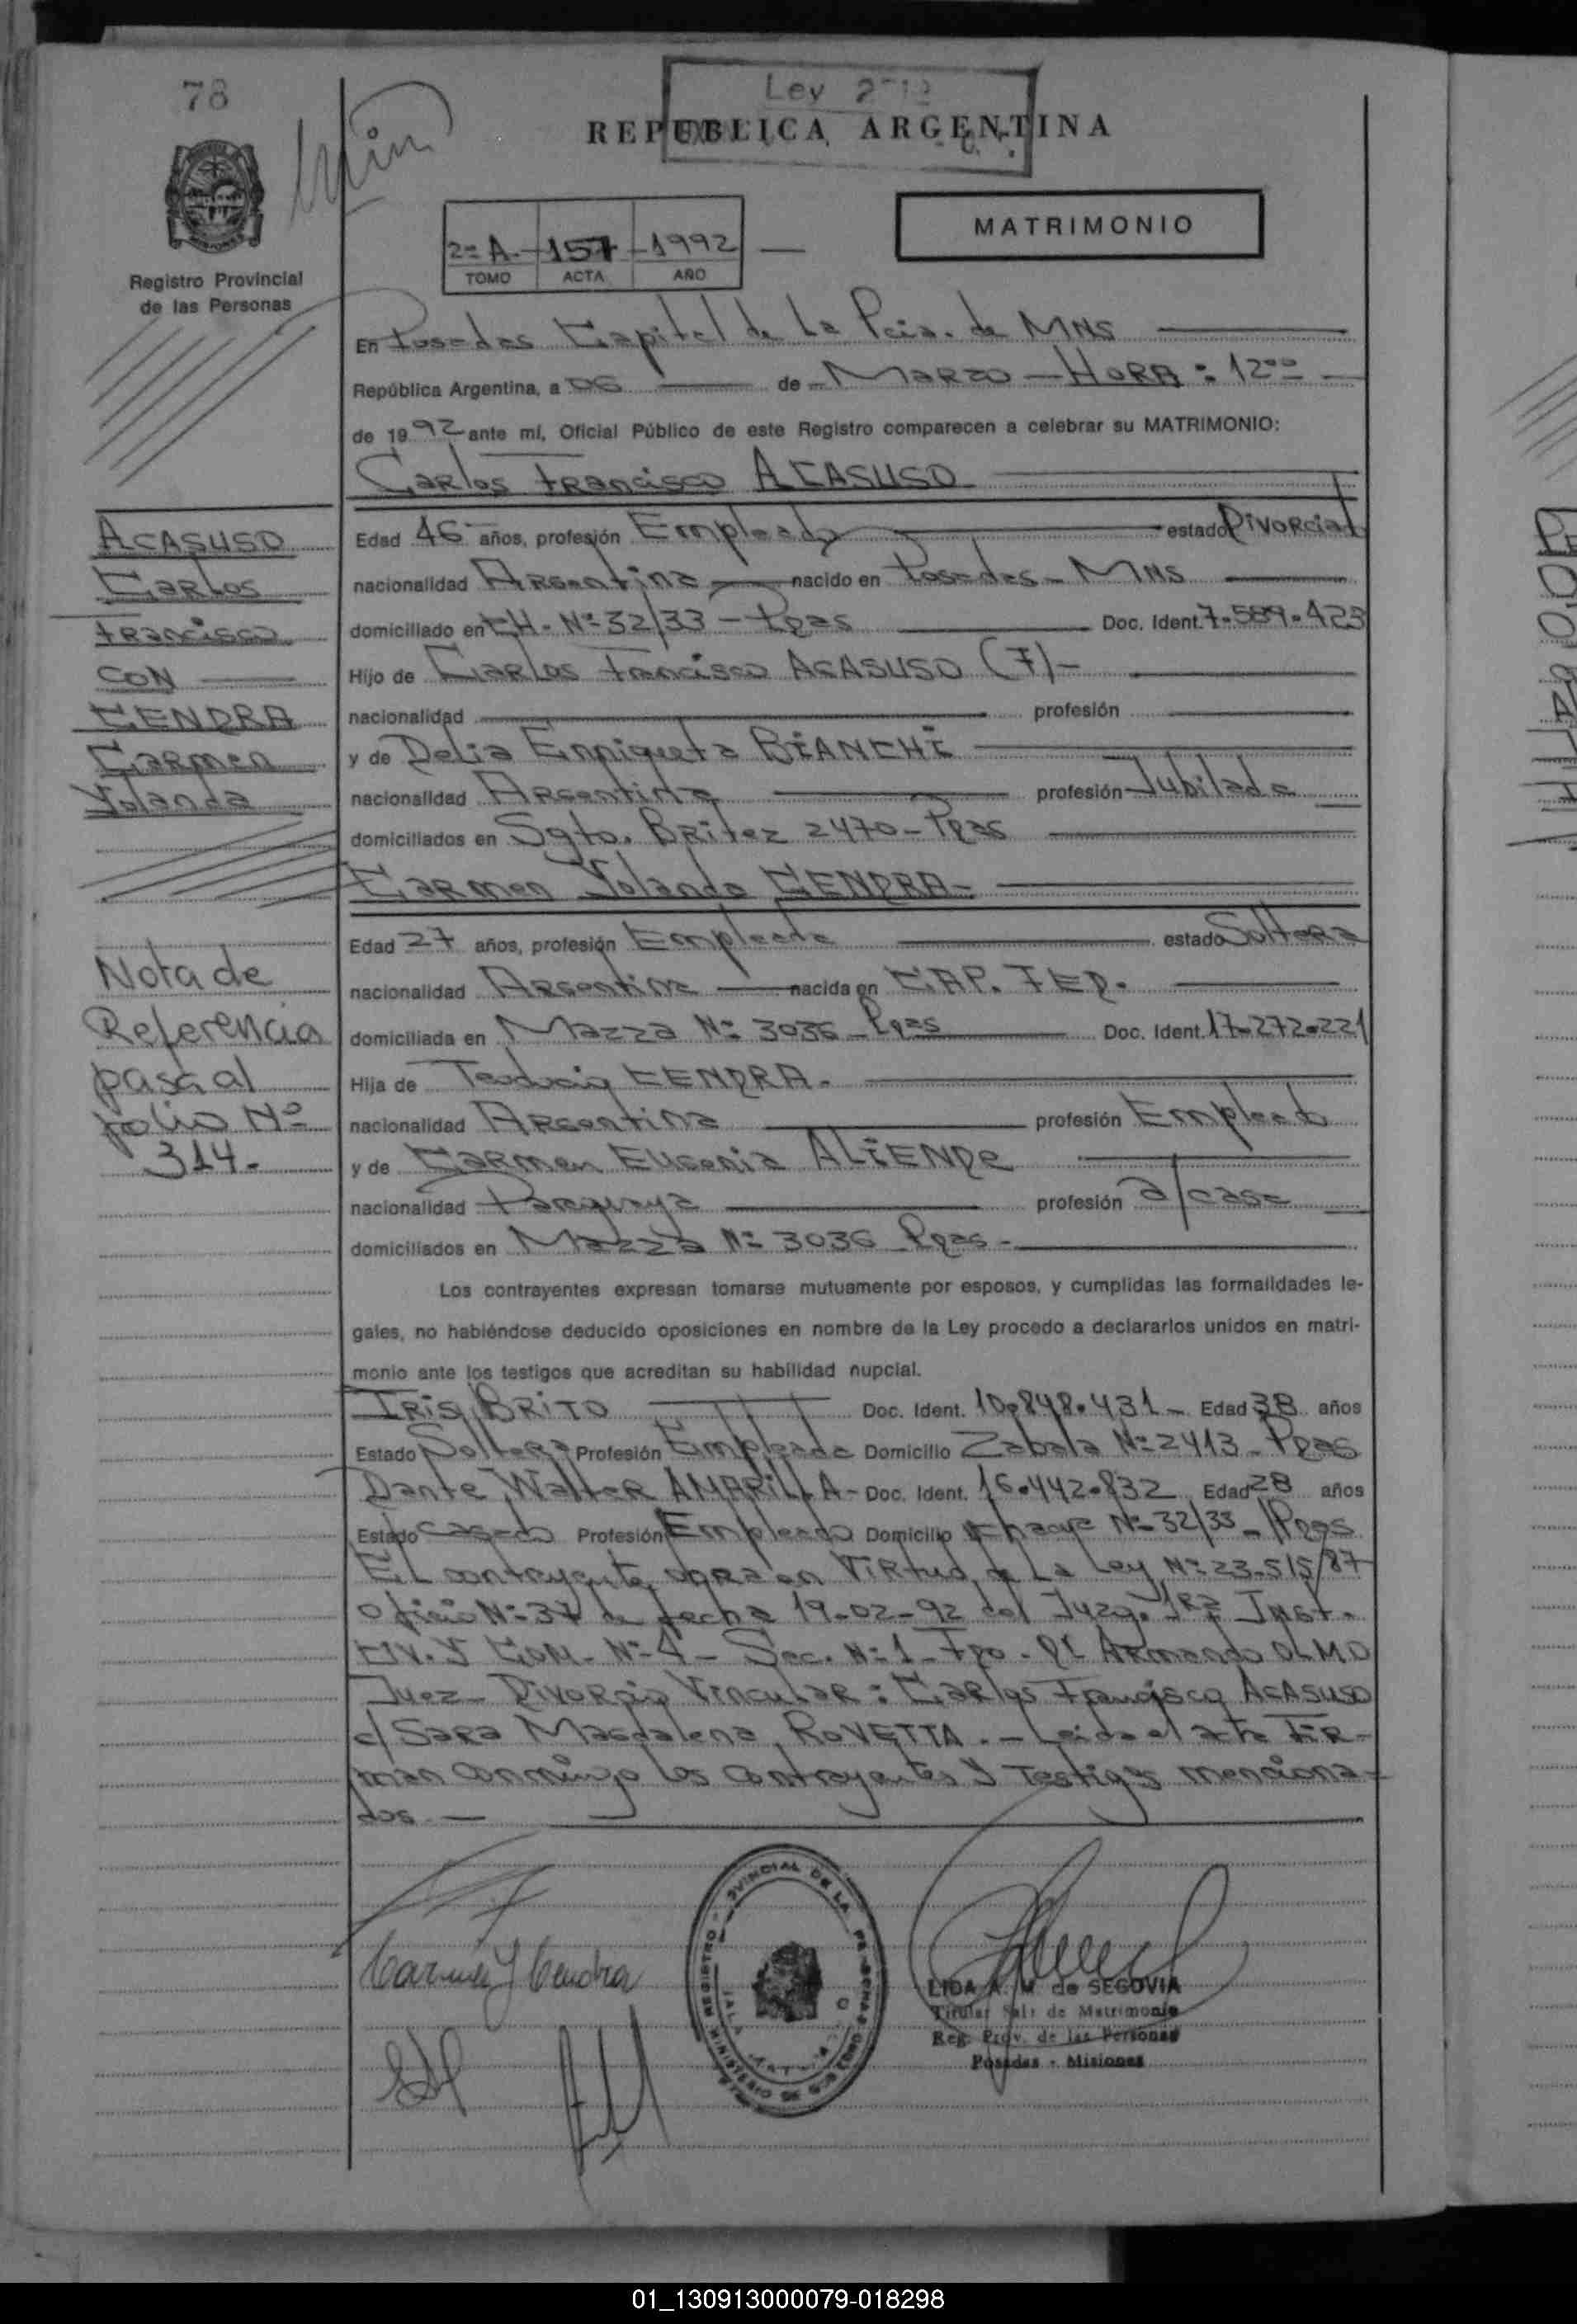 78
Ley 2
REPUBLICA ARGENTINA
MATRIMONIO
2=A.- 157 - 1992
TOMO ACTA AÑO
Registro Provincial
de las Personas
En Posadas Capital de La Pcia. de MNS
República Argentina, a 06 de Marzo - HORA: 12ºº
de 1992 ante mí, Oficial Público de este Registro comparecen a celebrar su MATRIMONIO:
Carlos Francisco ACASUSO
Edad 46 años, profesión Empleado estado Divorciado
nacionalidad Argentina nacido en Posadas - MNS
domiciliado en CH. Nº 32/33 - Pdas Doc. Ident. 7.589.423
Hijo de Carlos Francisco ACASUSO (F)-
nacionalidad profesión
y de Delia Enriqueta BIANCHI
nacionalidad Argentina profesión Jubilada
domiciliados en Sgto. Britez 2470 - Pdas
Carmen Yolanda CENDRA-
Edad 27 años, profesión Empleada estado Soltera
nacionalidad Argentina nacida en CAP. FED.
domiciliada en Mazza Nº 3036 - Pdas Doc. Ident. 17.272.221
Hija de CENDRA.
nacionalidad Argentina profesión Empleado
y de Carmen Eugenia ALIENDE
nacionalidad Paraguaya profesión a/casa
domiciliados en Mazza Nº 3036 - Pdas -
Los contrayentes expresan tomarse mutuamente por esposos, y cumplidas las formalidades le-
gales, no habiéndose deducido oposiciones en nombre de la Ley procedo a declararlos unidos en matri-
monio ante los testigos que acreditan su habilidad nupcial.
IRIS BRITO Doc. Ident. 10.848.431 - Edad 38 años
Estado Soltera Profesión Empleada Domicilio Zabala Nº 2413 - Pdas
Dante Walter AMARILLA - Doc. Ident. 16.442.832 Edad 28 años
Estado casado Profesión Empleado Domicilio Chacra Nº 32/33 - Pdas
El contrayente obra en virtud de La Ley Nº 23.515/87
Oficio Nº 37 de fecha 19-02-92 del Juzg. 1ra Inst.
CIV. Y COM. Nº 4 - Sec. Nº 1 - Fdo. Dr Armando OLMO
Juez - Divorcio Vincular: Carlos Francisco ACASUSO
c/ Sara Magdalena ROVETTA. - Leida el acta FIR-
man conmigo los contrayentes y Testigos menciona-
dos -
ACASUSO
Carlos
Francisco
CON
CENDRA
Carmen
Yolanda
Nota de
Referencia
pasa al
folio Nº
314.
Carmen Y Cendra
LIDA A. M. de SEGOVIA
Titular Sala de Matrimonio
Reg. Prov. de las Personas
Posadas - Misiones
01_130913000079-018298